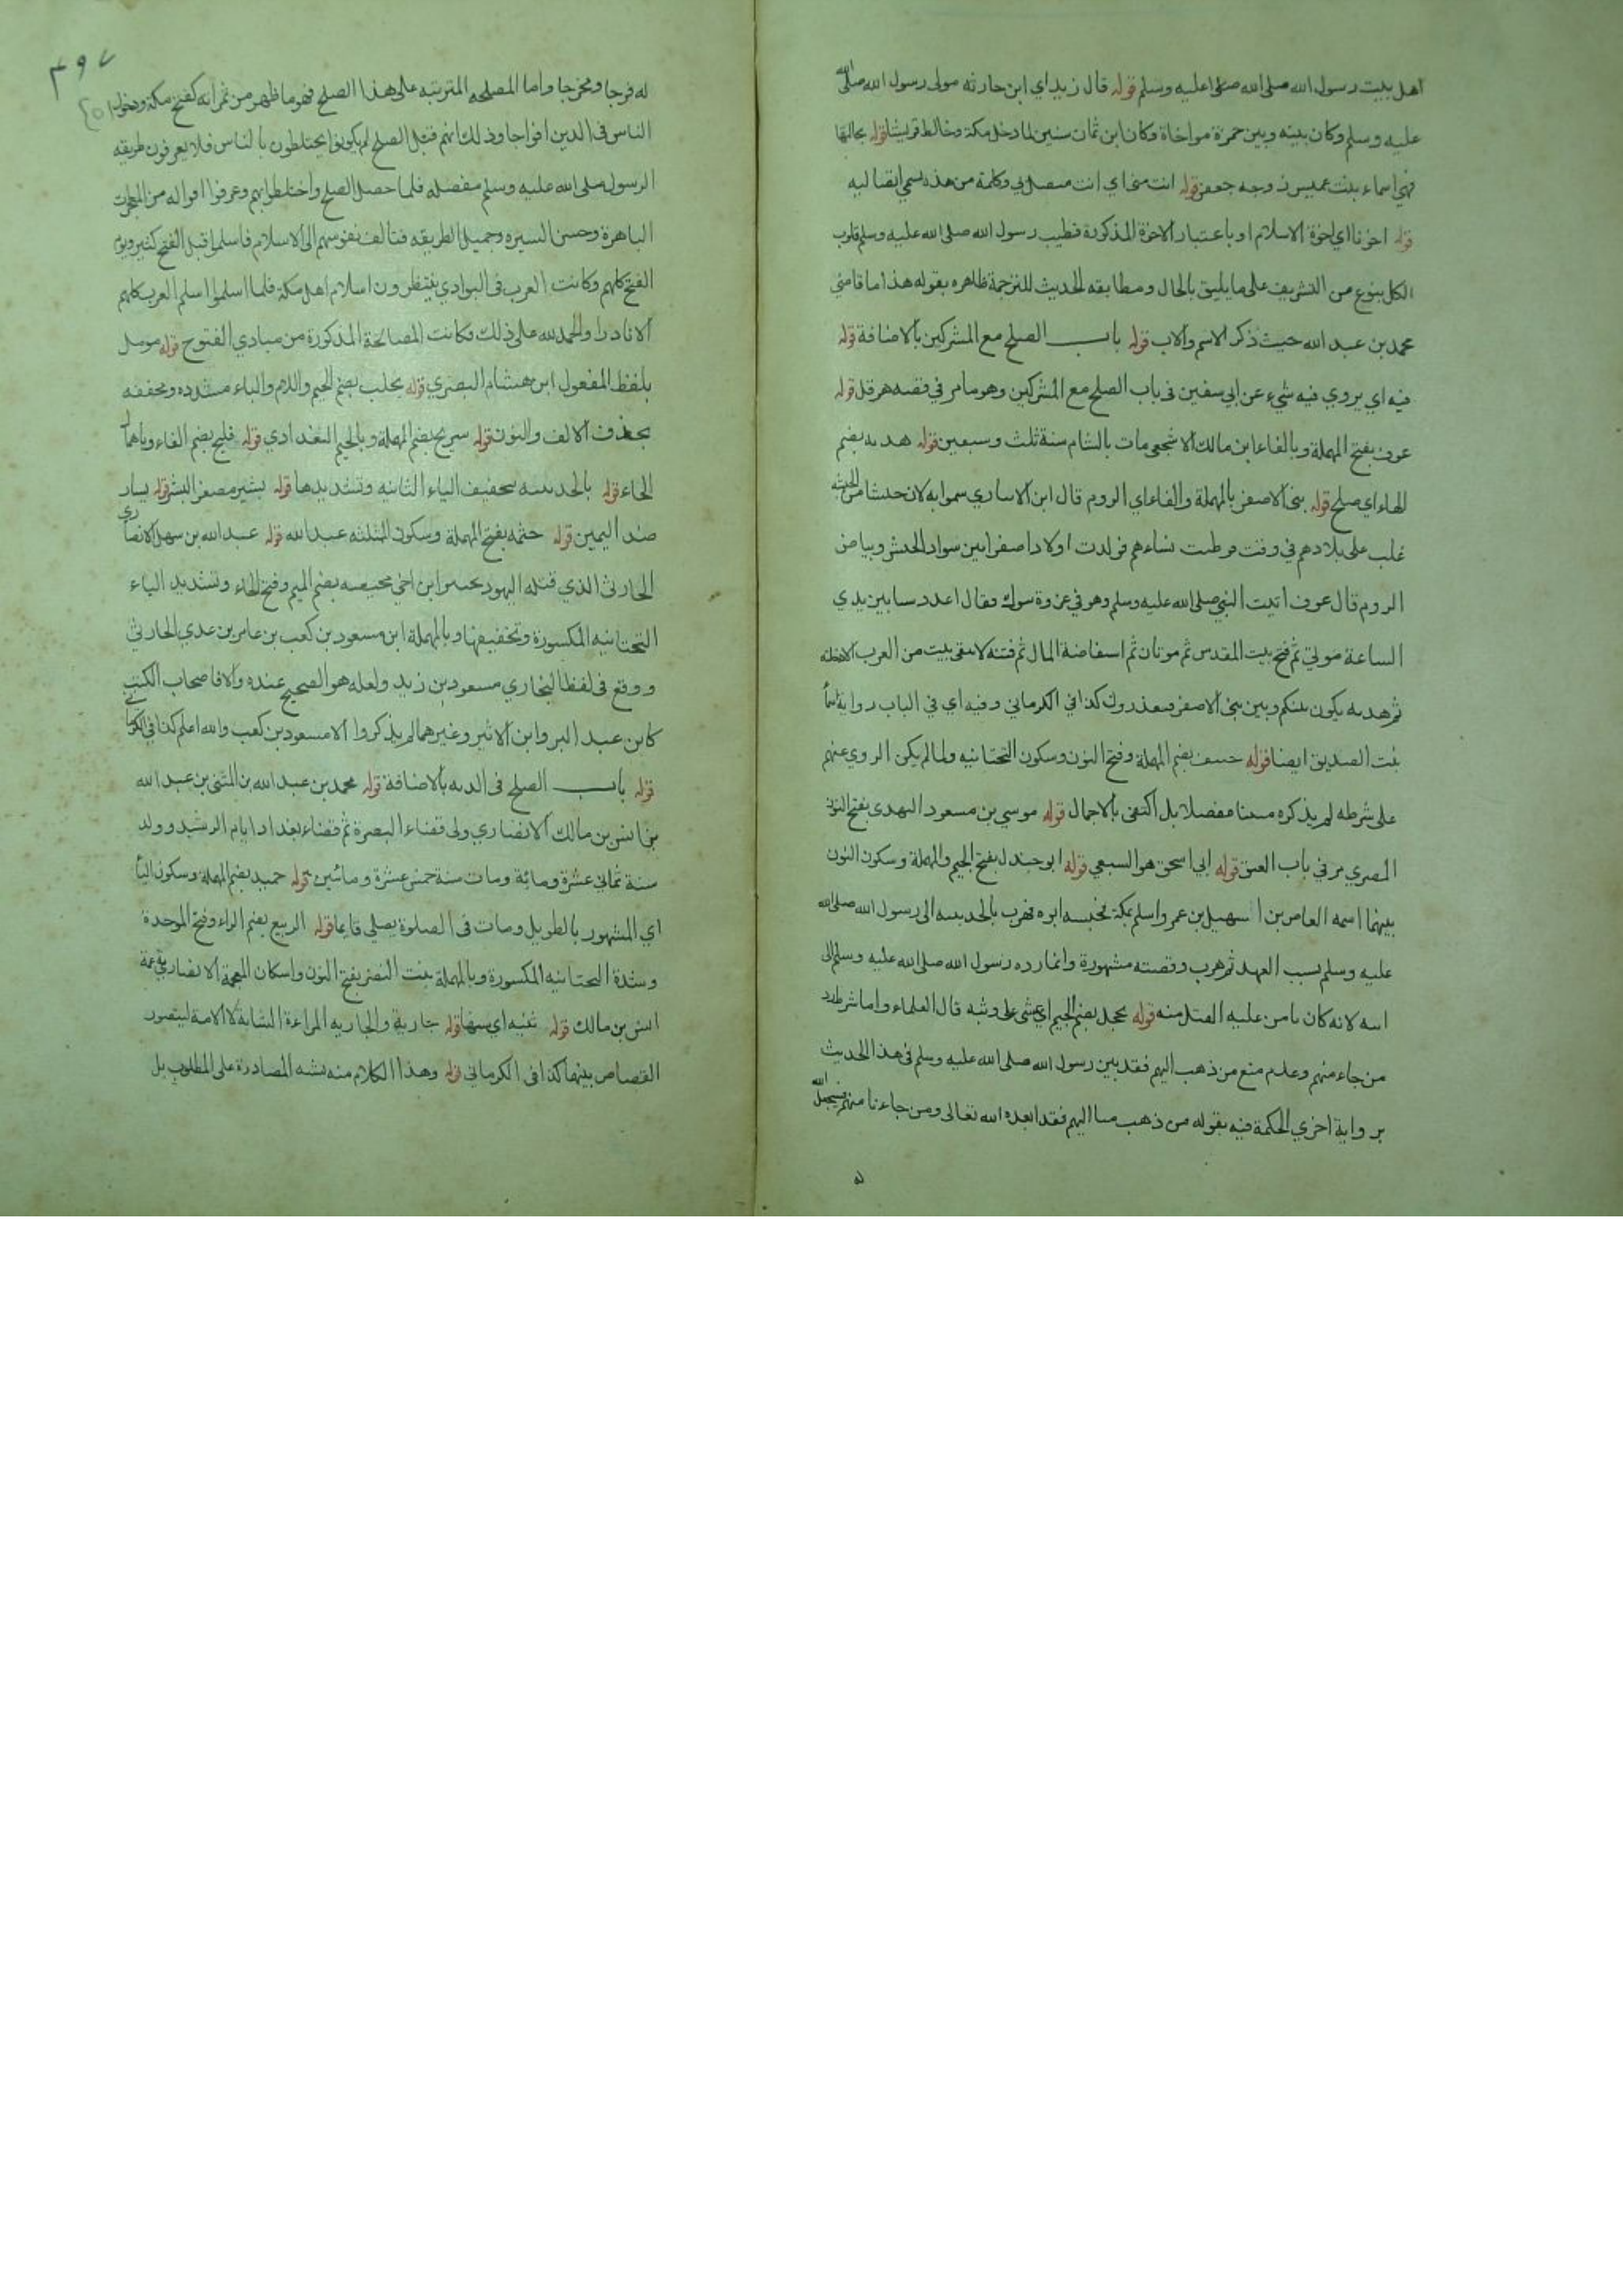 اهل بيت رسول الله صلى الله عليه وسلم قوله قال زيد اي ابن حارثه مولى رسول الله صلى الله
عليه وسلم وكان بينه وبين حمزة مواخاة وكان ابن ثمان سنين لما دخل مكة وخالط قريشا قوله بحالتها
فهي اسماء بنت عميس زوجه جعفر قوله انت مني اي انت متصل بي وكلمة من هذه تسمى اتصاليه
قوله اخونا اي اخوة الاسلام او باعتبار الاخوة المذكورة فطيب رسول الله صلى الله عليه وسلم قلوب
الكل بنوع من التشريف على ما يليق بالحال ومطابقه الحديث للترجمة ظاهره بقوله هذا ما قاضي
محمد بن عبد الله حيث ذكر الاسم والاب قوله باب الصلح مع المشركين بالاضافة قوله
فيه اي يروي فيه شيء عن ابي سفين في باب الصلح مع المشركين وهو ما مر في قصه هرقل قوله
عوف بفتح المهملة وبالفاء ابن مالك الاشجعي مات بالشام سنة ثلث وسبعين قوله هدنه بضم
الهاء اي صلح قوله بني الاصفر بالمهملة والفاء اي الروم قال ابن الانباري سموا به لان جيشا من الحبشه
غلب على بلادهم في وقت فوطئت نساءهم فولدت اولادا صفرا بين سواد الحبش وبياض
الروم قال عوف اتيت النبي صلى الله عليه وسلم وهو في غزوة تبوك وقال اعدد ستا بين يدي
الساعة موتي ثم فتح بيت المقدس ثم موتان ثم استفاضة المال ثم فتنه لا يبقى بيت من العرب الا دخلته
ثم هدنه يكون بينكم وبين بني الاصفر فيغدرون كذا في الكرماني وفيه اي في الباب رواية اسماء
بنت الصديق ايضا قوله حنيف بضم المهملة وفتح النون وسكون التحتانيه ولما لم يكن المروي عنهم
على شرطه لم يذكره معينا مفصلا بل اكتفى بالاجمال قوله موسى بن مسعود النهدي بفتح النون
المصري مر في باب العتق قوله ابي اسحق هو السبيعي قوله ابو جندل بفتح الجيم والمهملة وسكون النون
بينهما اسمه العاص بن سهيل بن عمرو اسلم بمكة فحبسه ابوه فهرب بالحديبيه الى رسول الله صلى الله
عليه وسلم بسبب العهد ثم هرب وقصته مشهورة وانما رده رسول الله صلى الله عليه وسلم الى
ابيه لانه كان يامن عليه القتل منه قوله يحجل بضم الجيم اي يمشي على وثبه قال العلماء واما شرط رد
من جاء منهم وعدم منع من ذهب اليهم فقد بين رسول الله صلى الله عليه وسلم في هذا الحديث
برواية اخري الحكمة فيه بقوله من ذهب منا اليهم فقد ابعده الله تعالى ومن جاءنا منهم سيجعل الله
له
٣٩٧
له فرجا ومخرجا واما المصلحه المترتبه على هذا الصلح فهو ما ظهر من ثمراته كفتح مكة ودخول
الناس في الدين افواجا وذلك انهم قبل الصلح لم يكونوا يختلطون بالناس فلا يعرفون طريقه
الرسول صلى الله عليه وسلم مفصله فلما حصل الصلح واختلطوا بهم وعرفوا احواله من المعجزات
الباهرة وحسن السيره وجميل الطريقه فتالف نفوسهم الى الاسلام فاسلموا قبل الفتح كثير ويوم
الفتح كلهم وكانت العرب في البوادي ينتظرون اسلام اهل مكة فلما اسلموا اسلم العرب كلهم
الا نادرا والحمد لله على ذلك فكانت المصالحة المذكورة من مبادي الفتوح قوله مومل
بلفظ المفعول ابن هشام البصري قوله بجلب بضم الجيم واللام والباء مشدده ومخففه
بحذف الالف والنون قوله سريج بضم المهملة وبالجيم البغدادي قوله فليح بضم الفاء وباهمال
الحاء قوله بالحديبيه بتخفيف الياء الثانيه وتشديدها قوله بشير مصغر البشر قوله يسار
ضد اليمين قوله حثمه بفتح المهملة وسكون المثلثه عبد الله قوله عبد الله بن سهل الانصاري
الحارثي الذي قتله اليهود بخيبر ابن اخي محيصه بضم الميم وفتح الحاء وتشديد الياء
التحتانيه المكسورة وتخفيفها وبالمهملة ابن مسعود بن كعب بن عامر بن عدي الحارثي
ووقع في لفظ البخاري مسعود بن زيد ولعله هو الصحيح عنده والا فاصحاب الكتب
كابن عبد البر وابن الاثير وغيرهما لم يذكروا الا مسعود بن كعب والله اعلم كذا في الكرماني
قوله باب الصلح في الديه بالاضافة قوله محمد بن عبد الله بن المثنى بن عبد الله
بن انس بن مالك الانصاري ولي قضاء البصرة ثم قضاء بغداد ايام الرشيد وولد
سنة ثماني عشرة ومائة ومات سنة خمس عشرة ومائتين قوله حميد بضم المهملة وسكون الياء
اي المشهور بالطويل ومات في الصلوة يصلي قايما قوله الربيع بضم الراء وفتح الموحدة
وشدة التحتانيه المكسورة وبالمهملة بنت النضر بفتح النون واسكان المعجمة الانصارية عمة
انس بن مالك قوله ثنيه اي سنها قوله جارية والجاريه المراءة الشابة لا الامة ليتصور
القصاص بينهما كذا في الكرماني قوله وهذا الكلام منه يشبه المصادرة على المطلوب بل